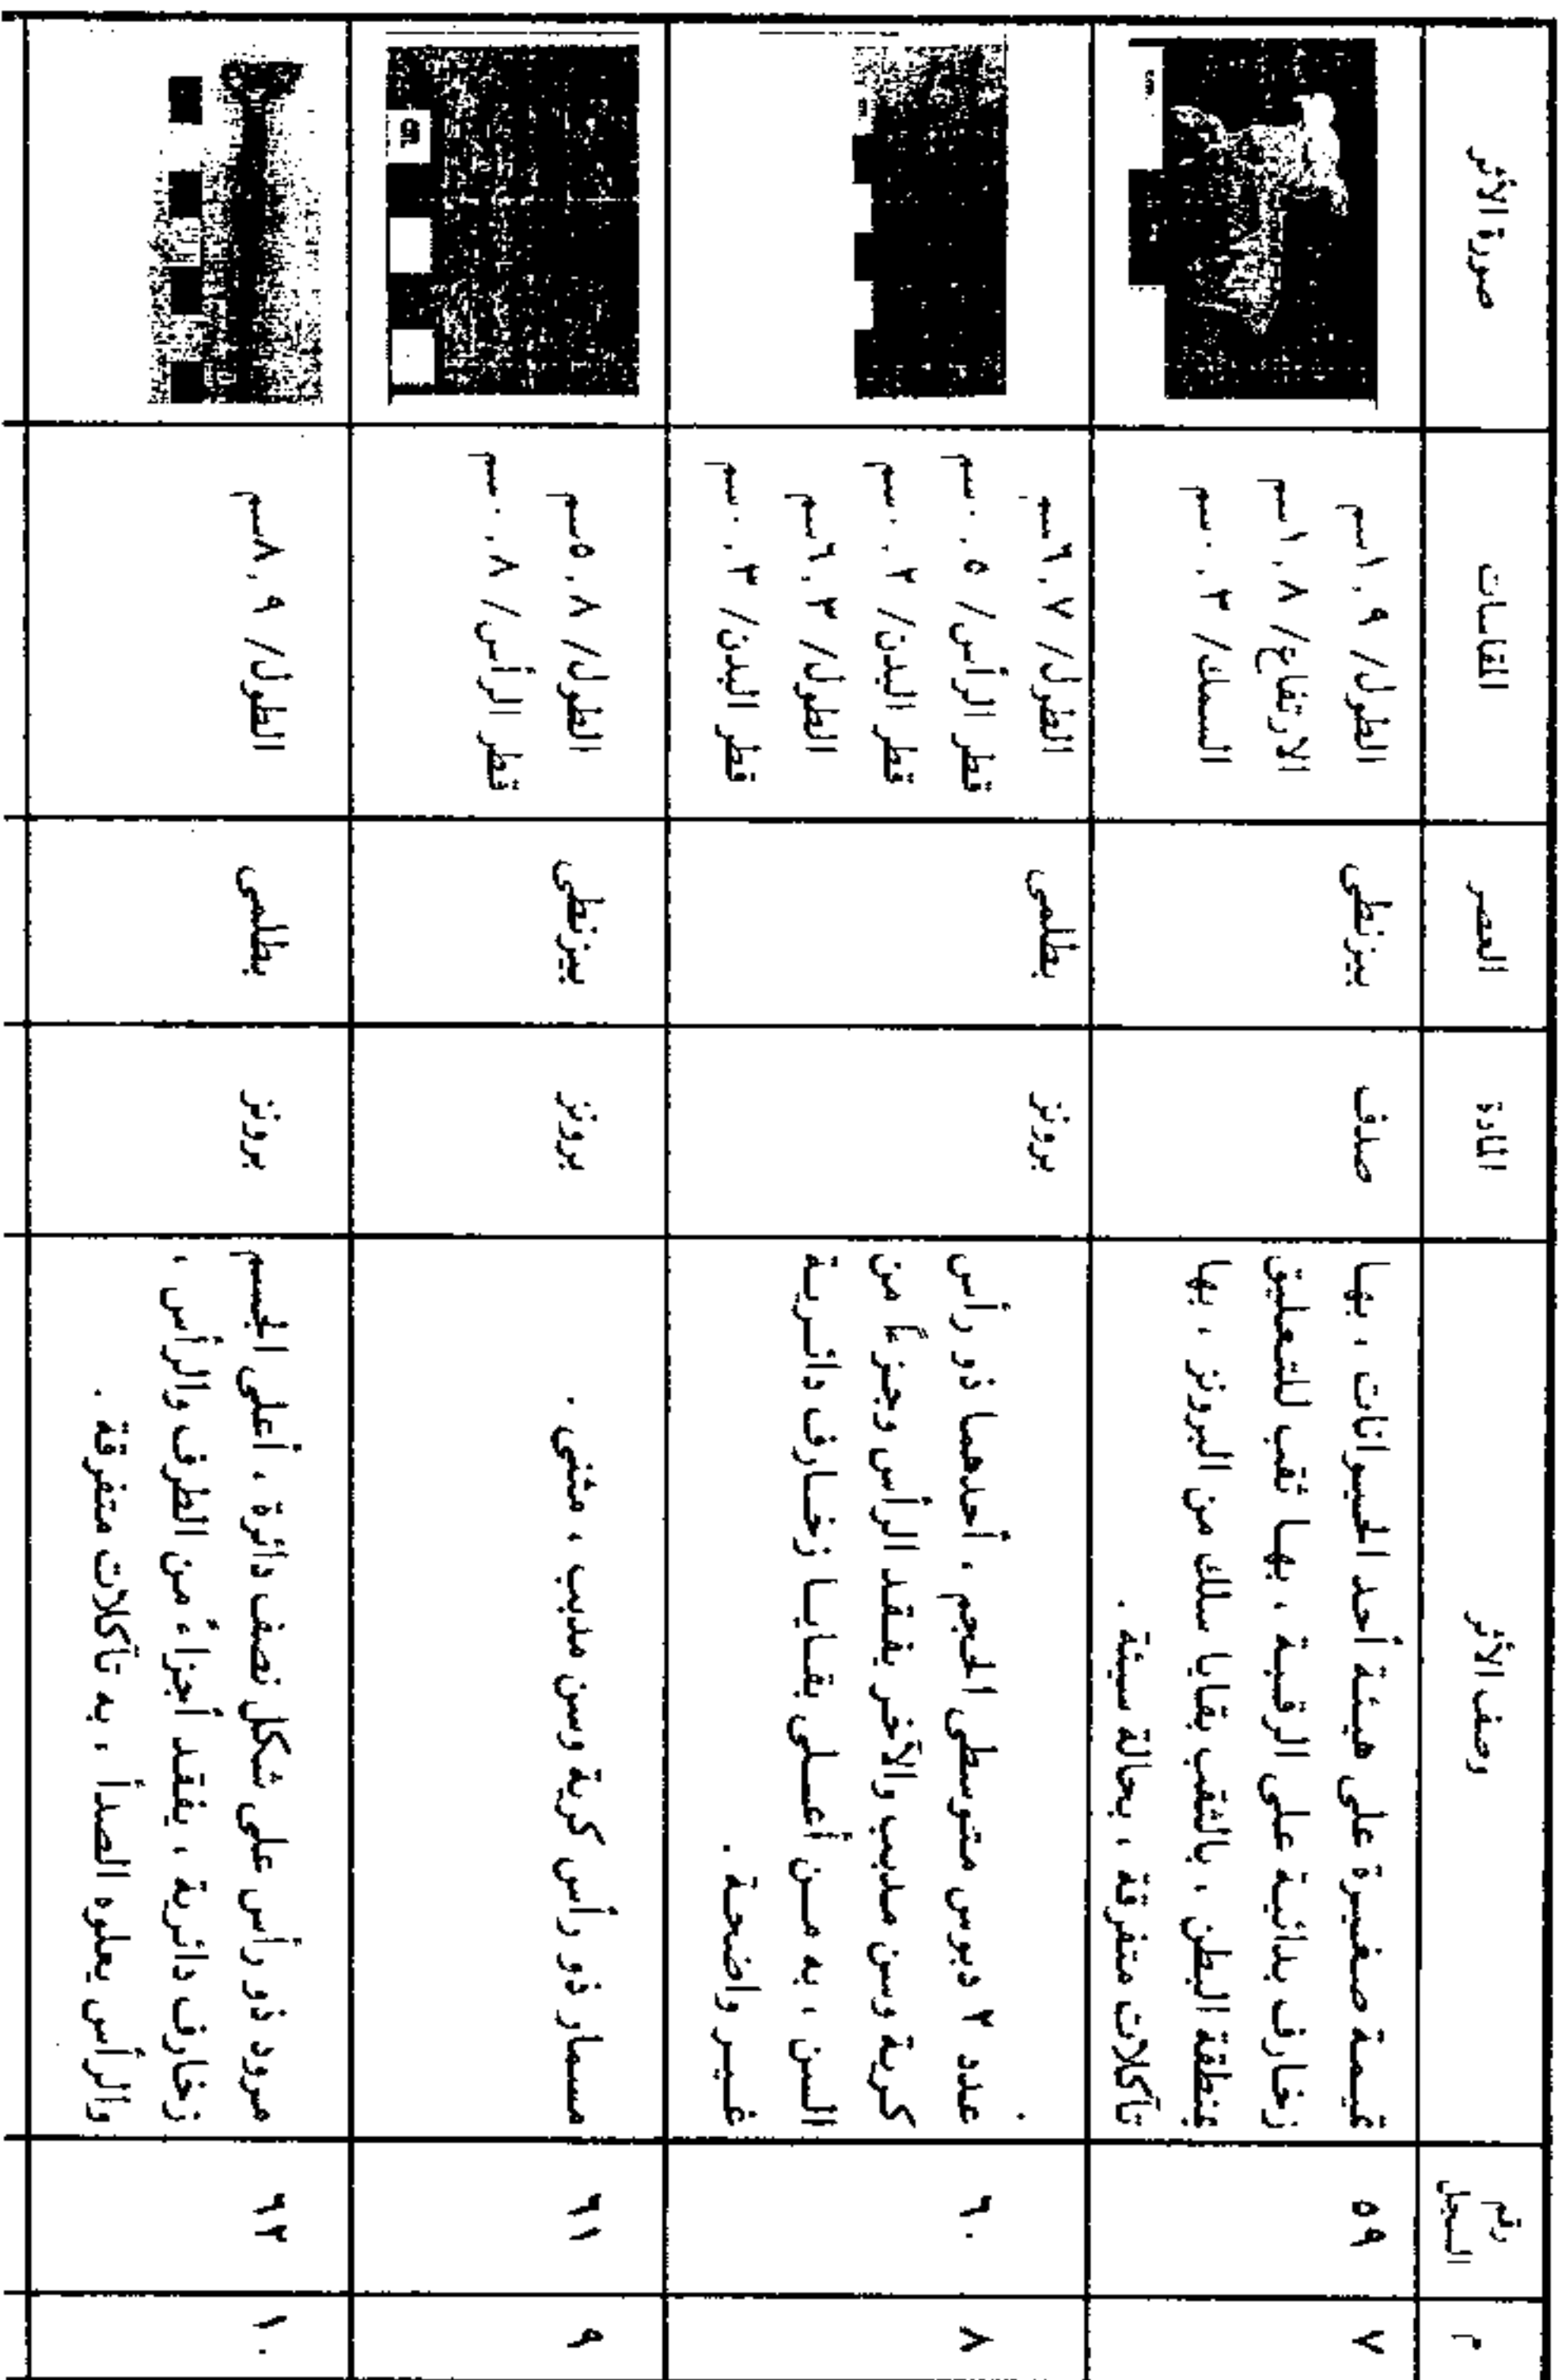 م
رقم السجل
وصف الأثر
المادة
العصر
المقاسات
صورة الأثر
٧
٥٩
تميمة صغيرة على هيئة أحد الحيوانات ، بها
زخارف بدائية على الرقبة ، بها ثقب للتعليق
بمنطقة البطن ، بالثقب بقايا سلك من البرونز ، بها
تآكلات متفرقة ، بحالة سيئة .
صدف
بيزنطى
الطول/ ١,٩سم
الارتفاع/ ١,٨سم
السمك/ ٠,٣سم
٨
٦٠
عدد ٢ دبوس متوسطى الحجم ، أحدهما ذو رأس
كرية وسن مدبب والآخر يفقد الرأس وجزءاً من
السن ، به من أعلى بقايا زخارف دائرية
غير واضحة .
برونز
بطلمى
الطول/ ٦,٧سم
قطر الرأس/ ٠,٥سم
قطر البدن/ ٠,٢سم
الطول/ ٦,٣سم
قطر البدن/ ٠,٣سم
٩
٦١
مسمار ذو رأس كرية وسن مدبب ، مثنى .
برونز
بيزنطى
الطول/ ٥,٨سم
قطر الرأس/ ٠,٨سم
cm
١٠
٦٢
مرود ذو رأس على شكل نصف دائرة ، أعلى الجسم
زخارف دائرية ، يفقد أجزاء من الطرف والرأس ،
والرأس يعلوه الصدأ ، به تآكلات متفرقة .
برونز
بطلمى
الطول/ ٨,٩سم